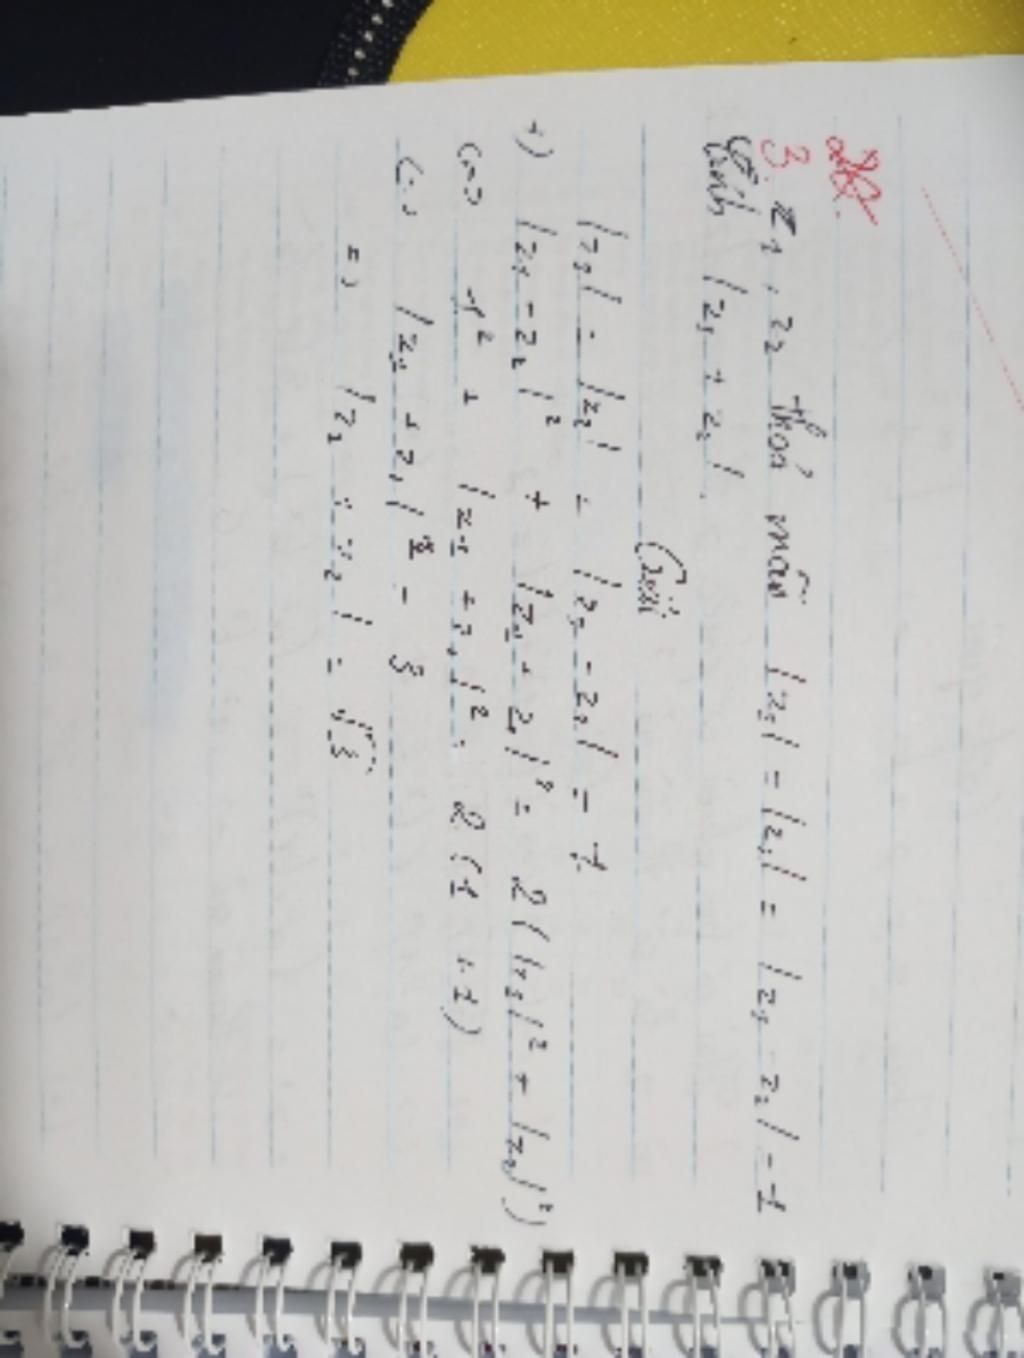 3. z₁, z₂ thoả mãn |z₁| = |z₂| = |z₁ - z₂| = 1
Tính |z₁ + z₂|.
Giải
|z₁| = |z₂| = |z₁ - z₂| = 1
+) |z₁ - z₂|² + |z₁ + z₂|² = 2(|z₁|² + |z₂|²)
<=> 1² + |z₁ + z₂|² = 2(1 + 1)
<=> |z₁ + z₂|² = 3
=> |z₁ + z₂| = √3